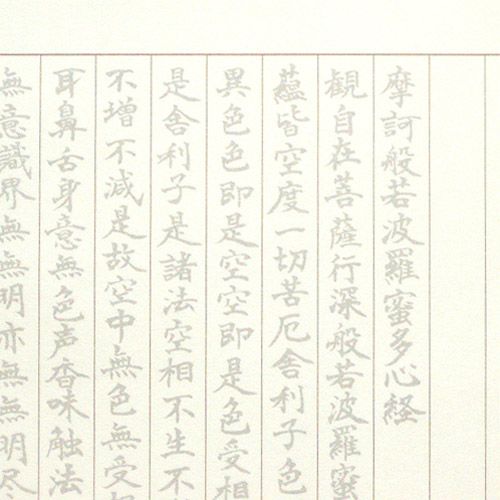 摩訶般若波羅蜜多心経
観自在菩薩行深般若波羅蜜
蘊皆空度一切苦厄舎利子色
異色色即是空空即是色受想
是舎利子是諸法空相不生不
不増不減是故空中無色無受想
耳鼻舌身意無色声香味触法
無意識界無無明亦無無明尽